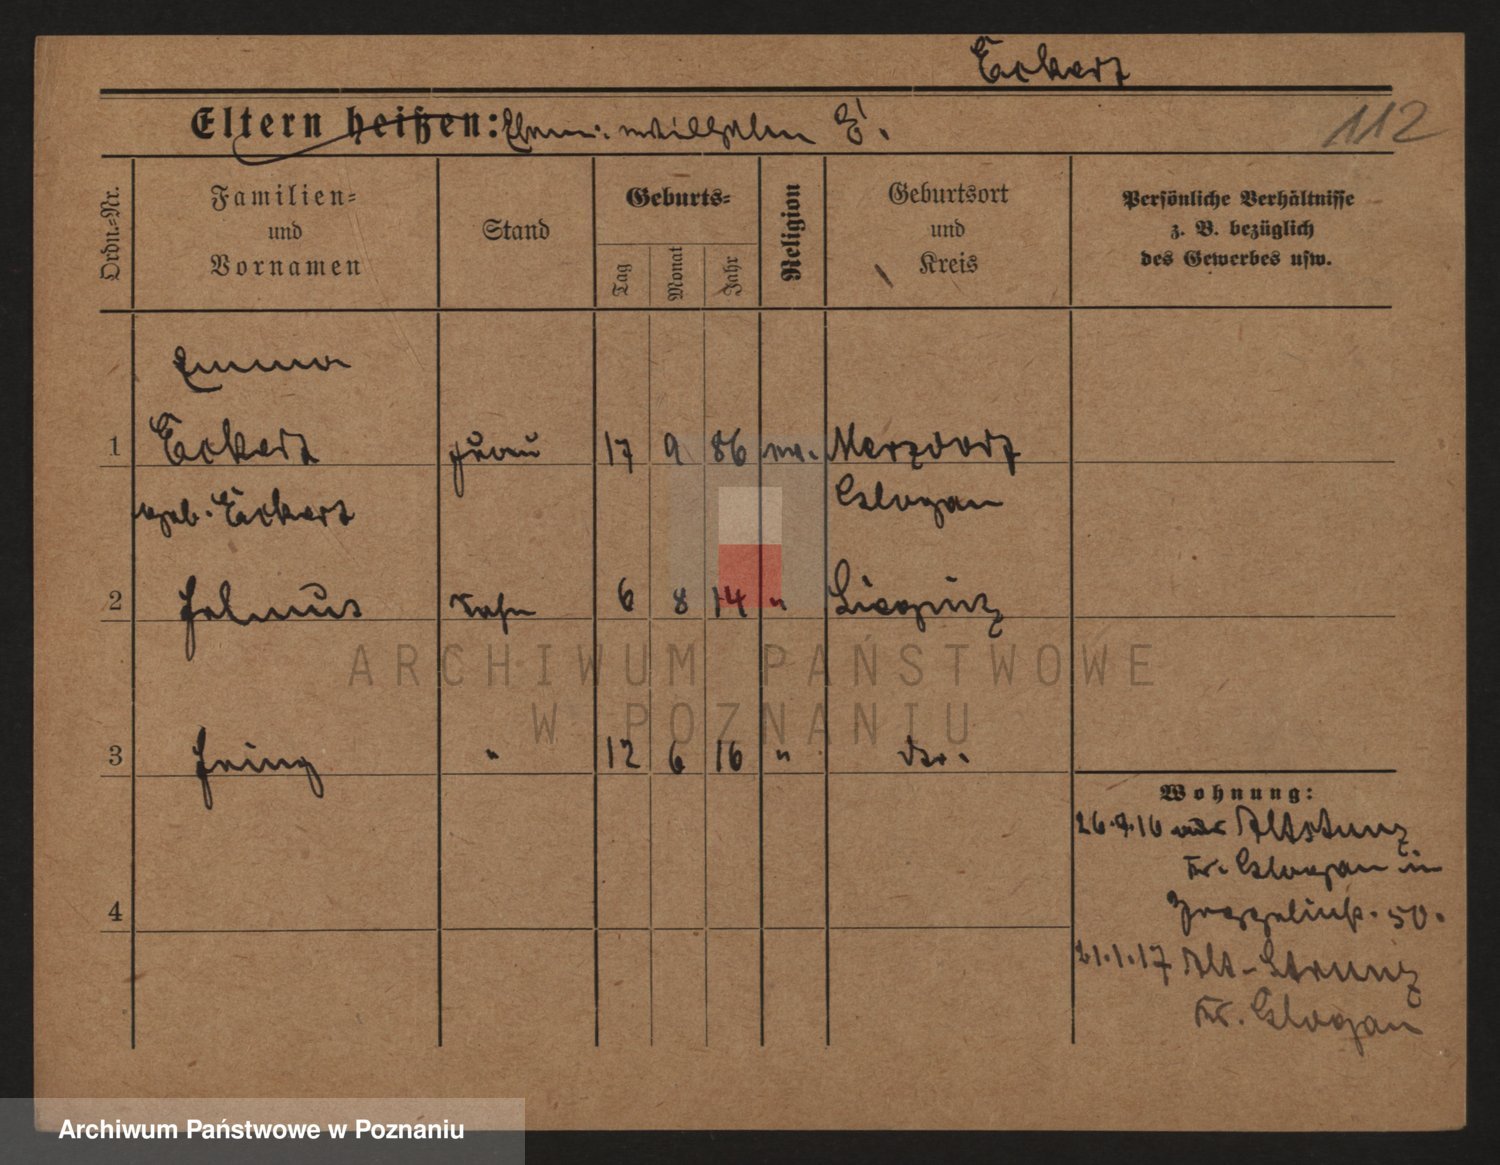 Eckert
112
Eltern heißen: Wilhelm E.
Ordn.-Nr.
Familien-
und
Vornamen
Stand
Geburts-
Tag
Monat
Jahr
Religion
Geburtsort
und
Kreis
Persönliche Verhältnisse
z. B. bezüglich
des Gewerbes usw.
Emma
1 Eckert Frau 17 9 86 ev. Merzdorf
geb. Eckert Glogau
2 Helmut Sohn 6 8 14 " Liegnitz
3 " 12 6 16 " do.
4
Wohnung:
26.9.16 aus Altstrunz
Kr. Glogau in
50.
21.1.17 Alt-Strunz
Kr. Glogau
ARCHIWUM PAŃSTWOWE
W POZNANIU
Archiwum Państwowe w Poznaniu